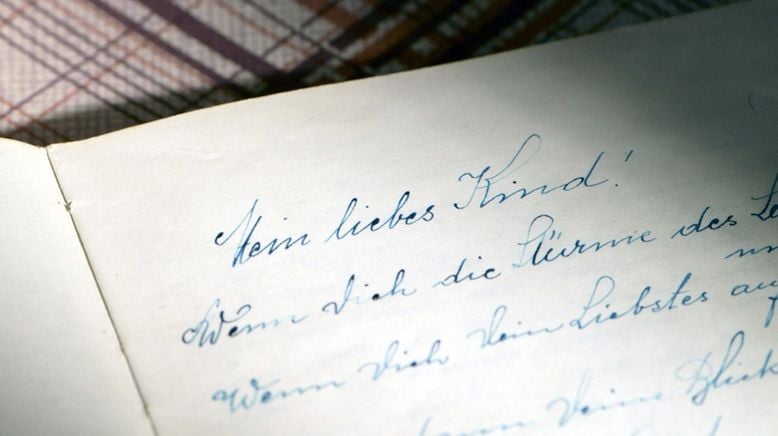 Mein liebes Kind!
Wenn Dich die Stürme des
Wenn Dich Dein Liebstes
Deine Blick